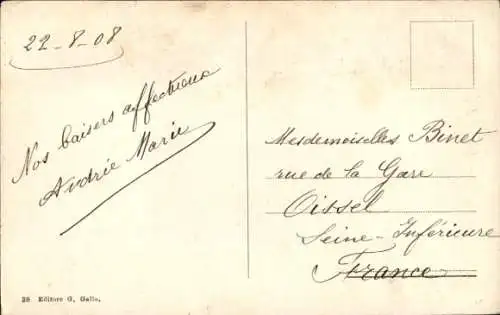 22-8-08
Nos baisers affectueux
Andrée Marie
Mesdemoiselles Binet
rue de la Gare
Oissel
Seine-Inférieure
France
38 Editore G. Gallo.